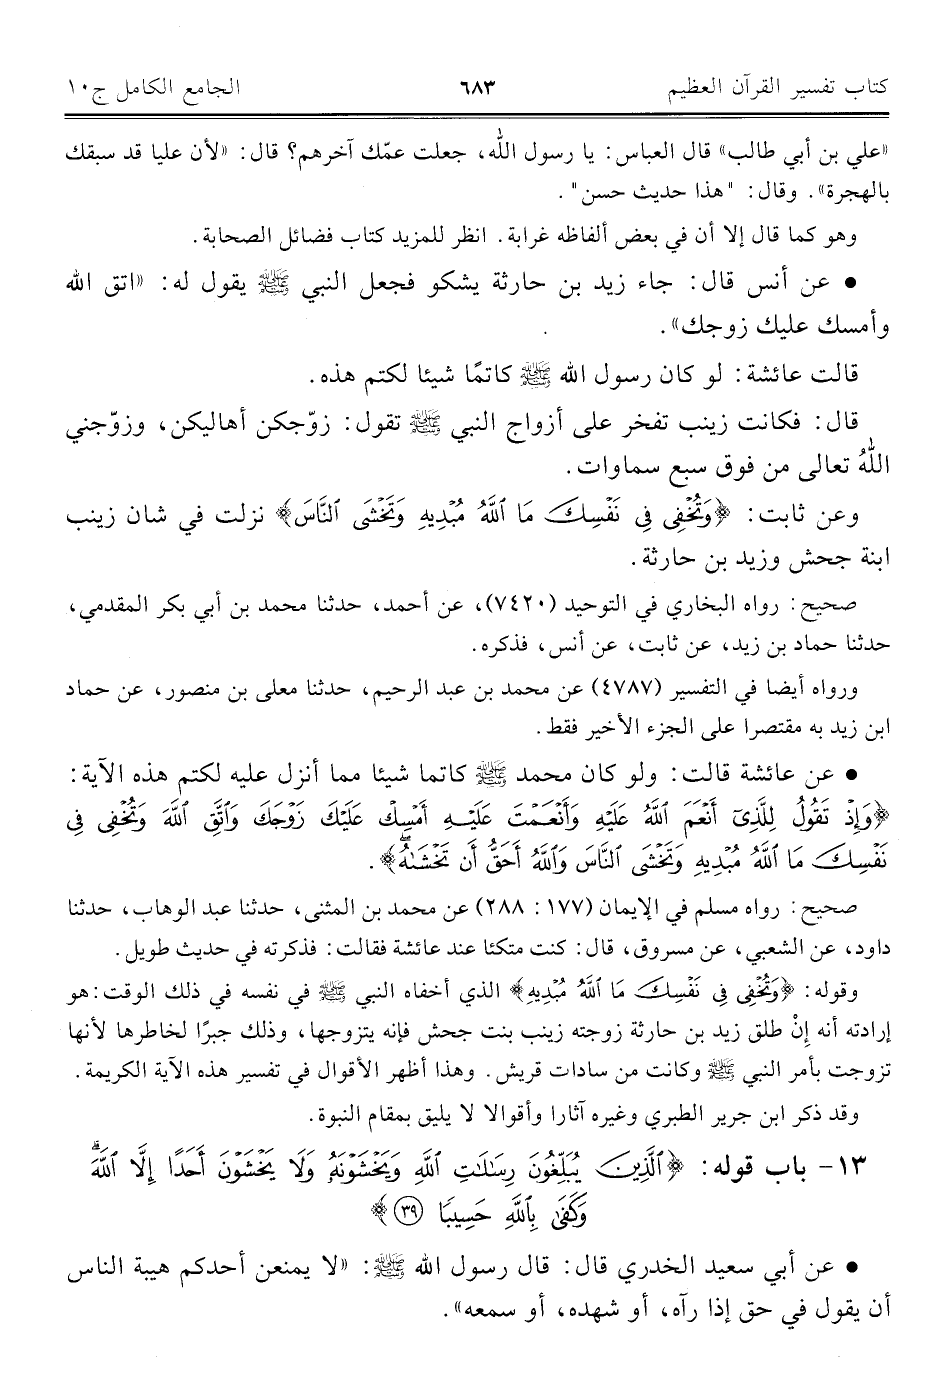 كتاب تفسير القرآن العظيم ٦٨٣ الجامع الكامل ج١٠
«علي بن أبي طالب» قال العباس: يا رسول الله، جعلت عمّك آخرهم؟ قال: «لأن عليا قد سبقك
بالهجرة». وقال: "هذا حديث حسن".
وهو كما قال إلا أن في بعض ألفاظه غرابة. انظر للمزيد كتاب فضائل الصحابة.
• عن أنس قال: جاء زيد بن حارثة يشكو فجعل النبي ﷺ يقول له: «اتق الله
وأمسك عليك زوجك».
قالت عائشة: لو كان رسول الله ﷺ كاتمًا شيئا لكتم هذه.
قال: فكانت زينب تفخر على أزواج النبي ﷺ تقول: زوّجكن أهاليكن، وزوّجني
اللهُ تعالى من فوق سبع سماوات.
وعن ثابت: ﴿وَتُخْفِي فِي نَفْسِكَ مَا اللَّهُ مُبْدِيهِ وَتَخْشَى النَّاسَ﴾ نزلت في شان زينب
ابنة جحش وزيد بن حارثة.
صحيح: رواه البخاري في التوحيد (٧٤٢٠)، عن أحمد، حدثنا محمد بن أبي بكر المقدمي،
حدثنا حماد بن زيد، عن ثابت، عن أنس، فذكره.
ورواه أيضا في التفسير (٤٧٨٧) عن محمد بن عبد الرحيم، حدثنا معلى بن منصور، عن حماد
ابن زيد به مقتصرا على الجزء الأخير فقط.
• عن عائشة قالت: ولو كان محمد ﷺ كاتما شيئا مما أنزل عليه لكتم هذه الآية:
﴿وَإِذْ تَقُولُ لِلَّذِي أَنْعَمَ اللَّهُ عَلَيْهِ وَأَنْعَمْتَ عَلَيْهِ أَمْسِكْ عَلَيْكَ زَوْجَكَ وَاتَّقِ اللَّهَ وَتُخْفِي فِي
نَفْسِكَ مَا اللَّهُ مُبْدِيهِ وَتَخْشَى النَّاسَ وَاللَّهُ أَحَقُّ أَن تَخْشَاهُ﴾.
صحيح: رواه مسلم في الإيمان (١٧٧ : ٢٨٨) عن محمد بن المثنى، حدثنا عبد الوهاب، حدثنا
داود، عن الشعبي، عن مسروق، قال: كنت متكئا عند عائشة فقالت: فذكرته في حديث طويل.
وقوله: ﴿وَتُخْفِي فِي نَفْسِكَ مَا اللَّهُ مُبْدِيهِ﴾ الذي أخفاه النبي ﷺ في نفسه في ذلك الوقت: هو
إرادته أنه إنْ طلق زيد بن حارثة زوجته زينب بنت جحش فإنه يتزوجها، وذلك جبرًا لخاطرها لأنها
تزوجت بأمر النبي ﷺ وكانت من سادات قريش. وهذا أظهر الأقوال في تفسير هذه الآية الكريمة.
وقد ذكر ابن جرير الطبري وغيره آثارا وأقوالا لا يليق بمقام النبوة.
١٣- باب قوله: ﴿الَّذِينَ يُبَلِّغُونَ رِسَالَاتِ اللَّهِ وَيَخْشَوْنَهُ وَلَا يَخْشَوْنَ أَحَدًا إِلَّا اللَّهَ ۗ
وَكَفَىٰ بِاللَّهِ حَسِيبًا ﴿٣٩﴾﴾
• عن أبي سعيد الخدري قال: قال رسول الله ﷺ: «لا يمنعن أحدكم هيبة الناس
أن يقول في حق إذا رآه، أو شهده، أو سمعه».